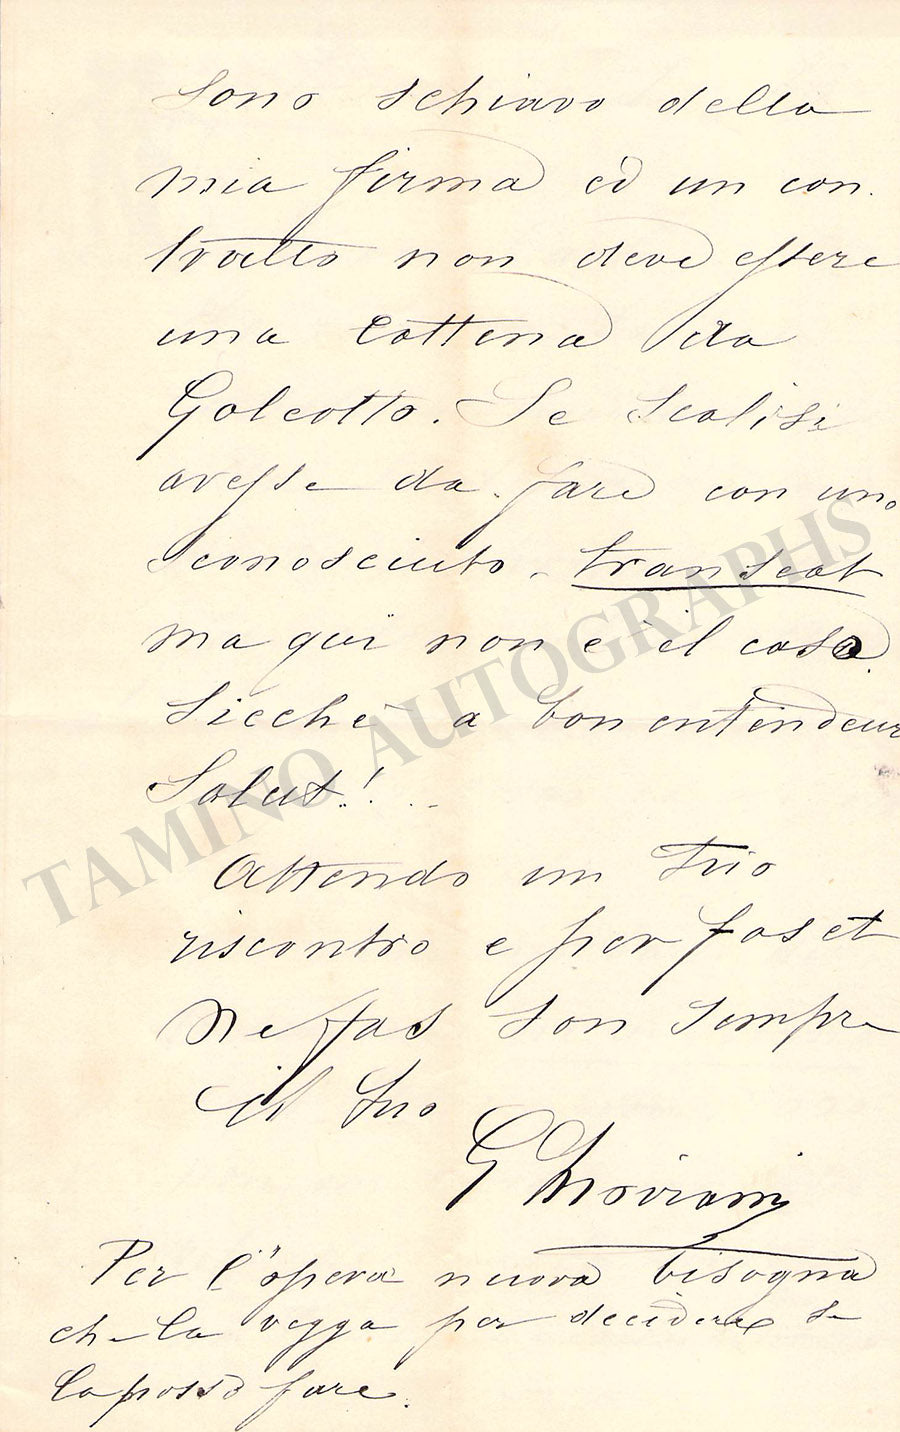 Sono schiavo della
mia firma ed un con
tratto non deve essere
una cattena da
Galeotto. Se Scalisi
avesse da fare con uno
sconosciuto - transeat
ma qui non è il caso.
Sicchè a bon entendeur
Salut! ..
Attendo un tuo
riscontro e per fas et
nefas son sempre
il tuo
G Moriami
Per l'opera nuova bisogna
che la vegga per decidere se
la posso fare.
TAMINO AUTOGRAPHS